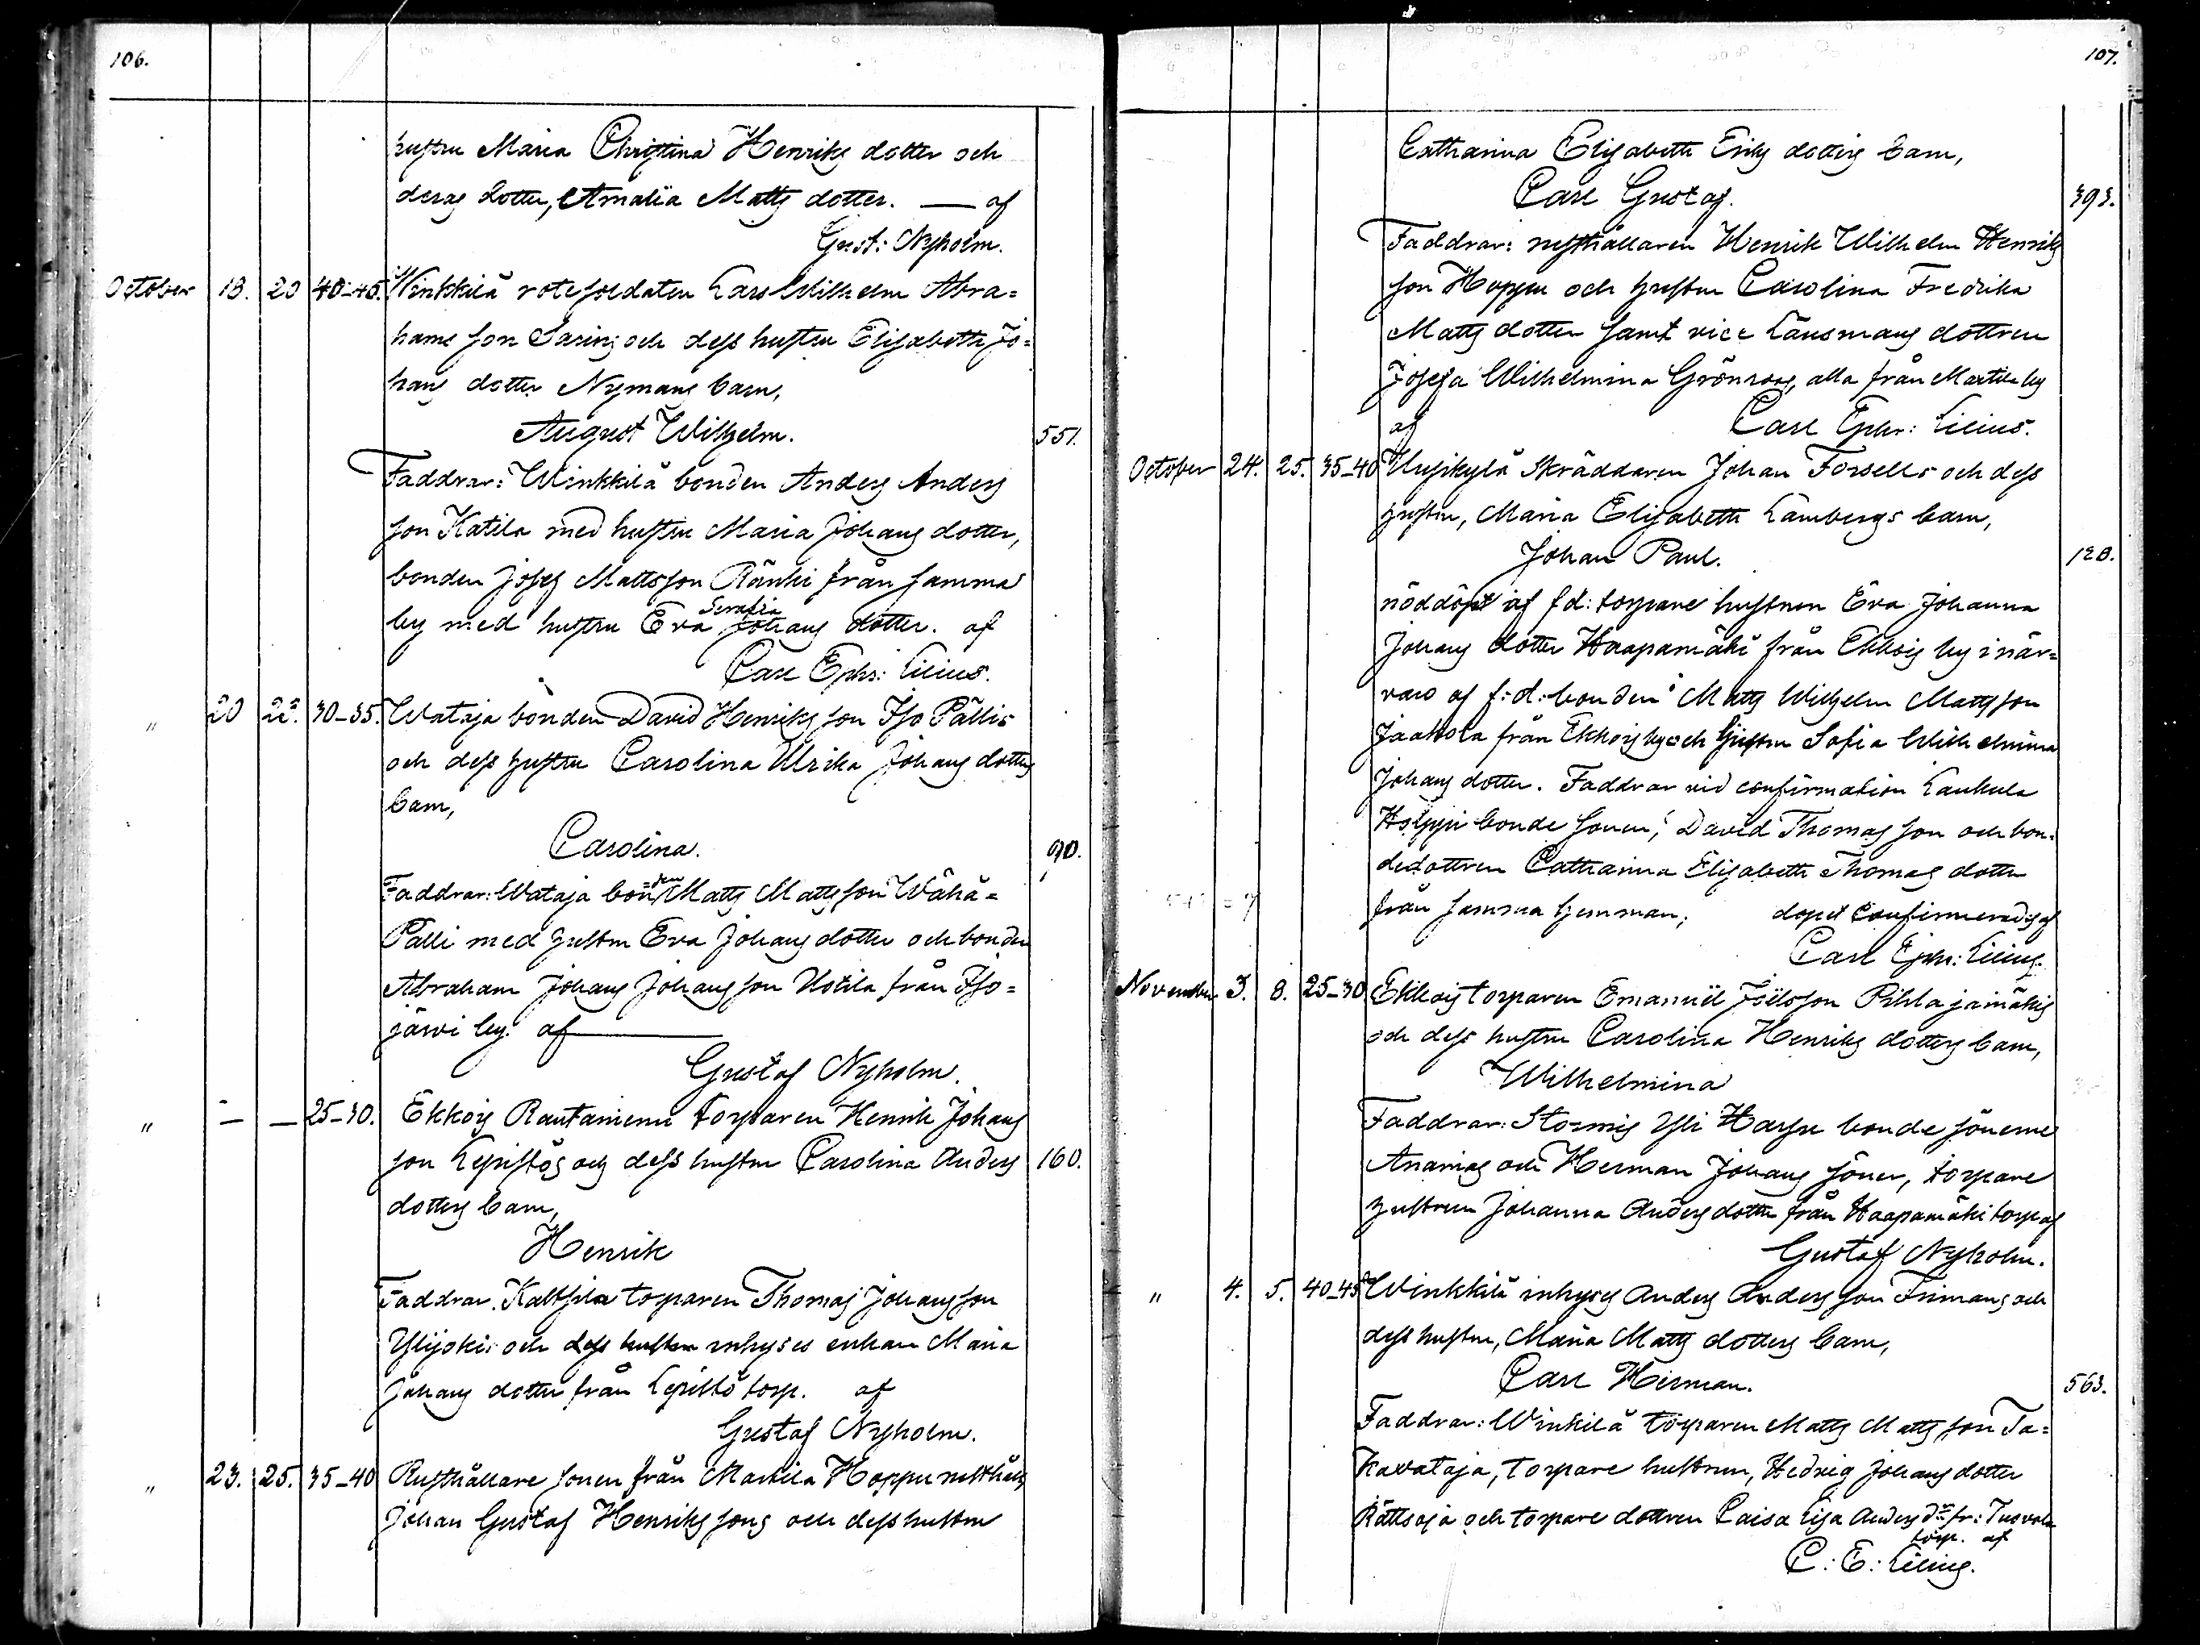 106.
hustru Maria Christina Henriks dotter och
deras dotter, Amalia Matts dotter. — af
Gust: Nyholm.
October 18. 20 40-45. Winkkilä rotesoldaten Lars Wilhelm Abra=
hams son Saxins och dess hustru Elisabeth Jo=
hans dotter Nymans barn,
August Wilhelm. 551.
Faddrar: Winkkilä bonden Anders Anders
son Katila med hustru Maria Johans dotter,
bonden Josef Mattsson Ränki från samma
by med hustru Eva Serafia Johans dotter. af
Carl Ephr: Lilius.
" 20 22. 30-35. Wataja bonden David Henriks son Iso Pällis
och dess hustru Carolina Ulrika Johans dotters
barn,
Carolina. 90.
Faddrar: Wataja bonden Matts Matts son Wähä=
Pälli med hustru Eva Johans dotter och bonden
Abraham Johans Johans son Uotila från Iso=
järvi by. af
Gustaf Nyholm.
" — — 25-30. Ekkois Rautaniemi torparen Henrik Johans
son Lepistös och dess hustru Carolina Anders 160.
dotters barn,
Henrik
Faddrar. Kaltsila torparen Thomas Johans son
Ylijoki och dess hustru inhyses enkan Maria
Johans dotter från Lepistö torp. af
Gustaf Nyholm.
" 23. 25. 35-40 Rusthållare sonen från Markila Hoppu rusthålls
Johan Gustaf Henriks sons och dess hustru
107.
Catharina Elisabeth Eriks dotters barn,
Carl Gustaf. 393.
Faddrar: rusthållaren Henrik Wilhelm Henriks
son Hoppu och hustru Carolina Fredrika
Matts dotter samt vice Länsmans dottren
Josefa Wilhelmina Grönroos, alla från Martila by
af Carl Ephr: Lilius.
October 24. 25. 35-40 Uusikylä Skräddaren Johan Forsells och dess
hustru, Maria Elisabeth Lambergs barn,
Johan Paul. 128.
nöddöpt af f d: torpare hustrun Eva Johanna
Johans dotter Haapamäki från Ekkois by i när=
varo af f: d: bonden Matts Wilhelm Matts son
Jaakola från Ekkois by och hustru Sofia Wilhelmina
Johans dotter. Faddrar vid confirmation Laukula
Hoppu bonde sonen, David Thomas son och bon=
dedottren Catharina Elisabeth Thomas dotter
från samma hemman; dopet confirmerades af
Carl Ephr: Lilius.
November 3. 8. 25-30 Ekkois torparen Emanuel Joëlsson Pihlajamäkis
och dess hustru Carolina Henriks dotters barn,
Wilhelmina
Faddrar: Stormis Yli Harju bonde sönerne
Ananias och Herman Johans söner, torpare
hustrun Johanna Anders dotter från Haapamäki torp af
Gustaf Nyholm.
" 4. 5. 40-45 Winkkilä inhyses Anders Anders son Frimans och
dess hustru, Maria Matts dotters barn,
Carl Herman. 563.
Faddrar: Winkilä torparen Matts Matts son Ta=
kavataja, torpare hustrun, Hedvig Johans dotter
Rättsaja och torpare dottren Caisa Lisa Anders dr fr: Tuovola
torp. af
C: E: Lilius.